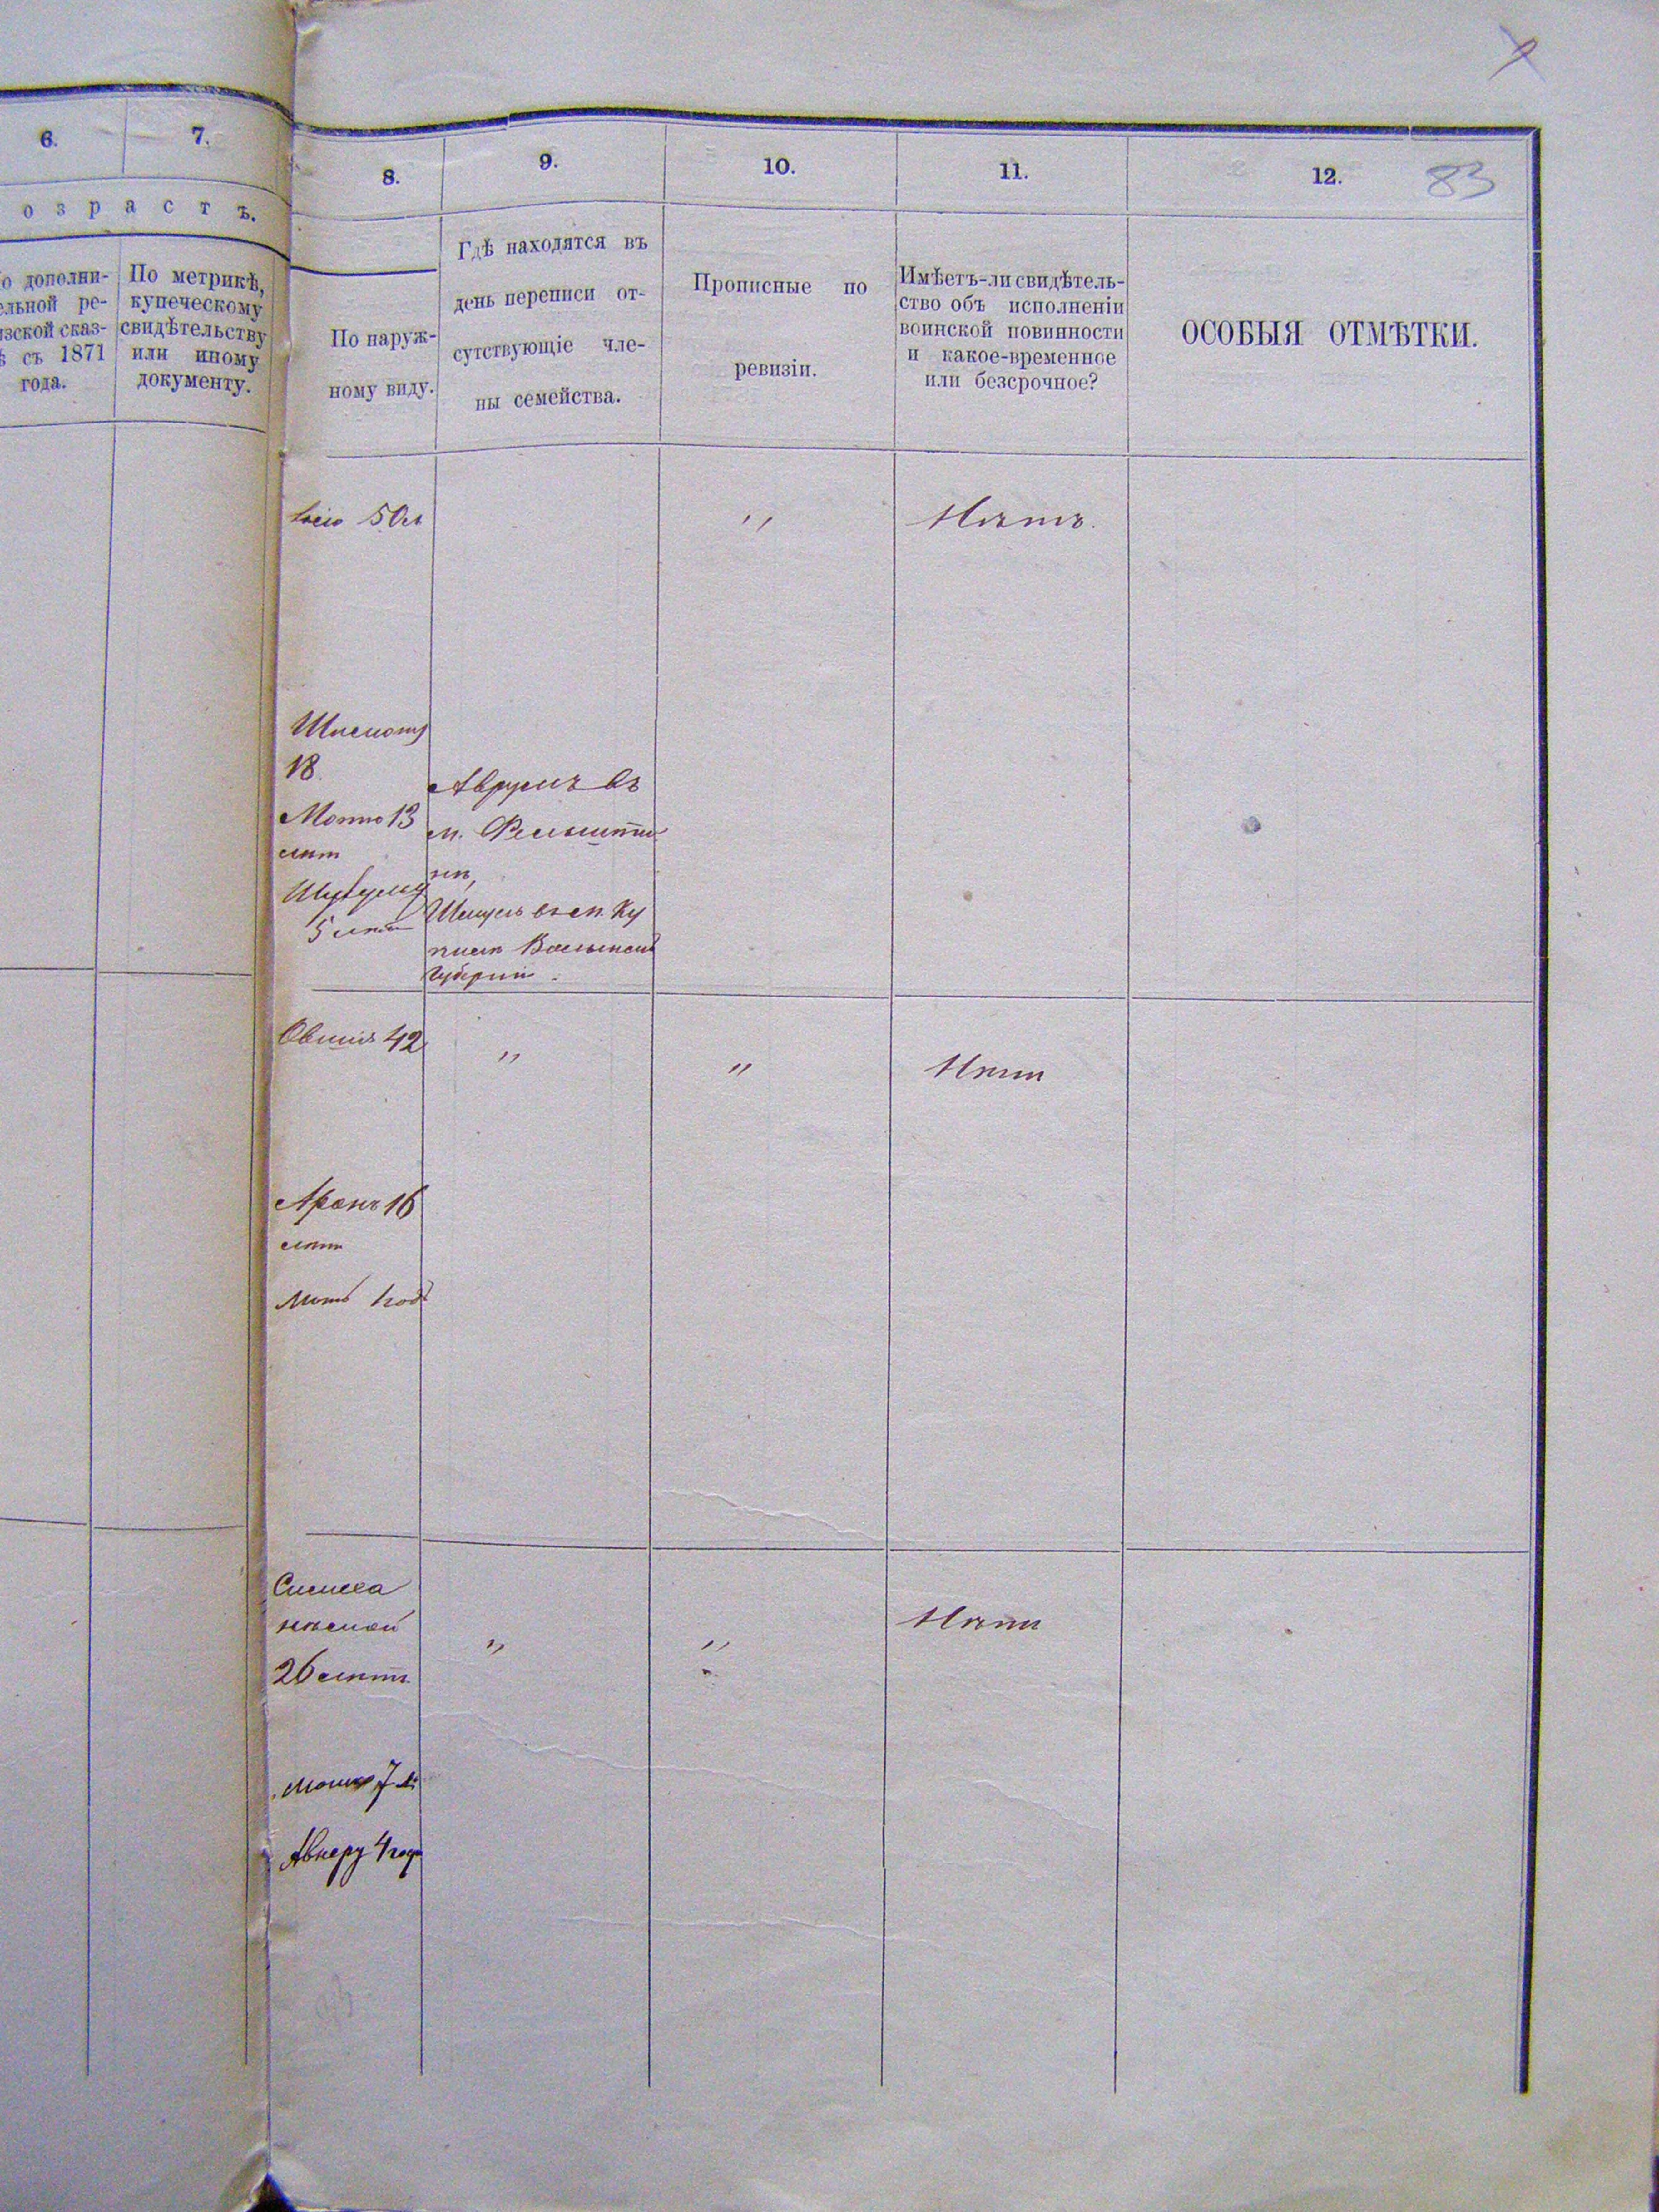 6.
7.
8.
9.
10.
11.
12.
83
о з р а с т ъ.
о дополни-
ельной ре-
изской сказ-
ѣ съ 1871
года.
По метрикѣ,
купеческому
свидѣтельству
или иному
документу.
По наруж-
ному виду.
Гдѣ находятся въ
день переписи от-
сутствующіе чле-
ны семейства.
Прописные по
ревизіи.
Имѣетъ-ли свидѣтель-
ство объ исполненіи
воинской повинности
и какое-временное
или безсрочное?
ОСОБЫЯ ОТМѢТКИ.
50 л
〃
Нѣтъ.
18
Мотто 13
лѣт
5 лѣт
Аврумъ въ
м. Фельшти
нѣ,
Шмуль въ м. Ку
Волынской
Губерніи.
Овшія 42
〃
〃
Нѣтъ
Аронъ 16
лѣтъ
1 годъ
Симха
26 лѣтъ
〃
〃
Нѣтъ
Мошко 7 л:
Авнеру 4 года